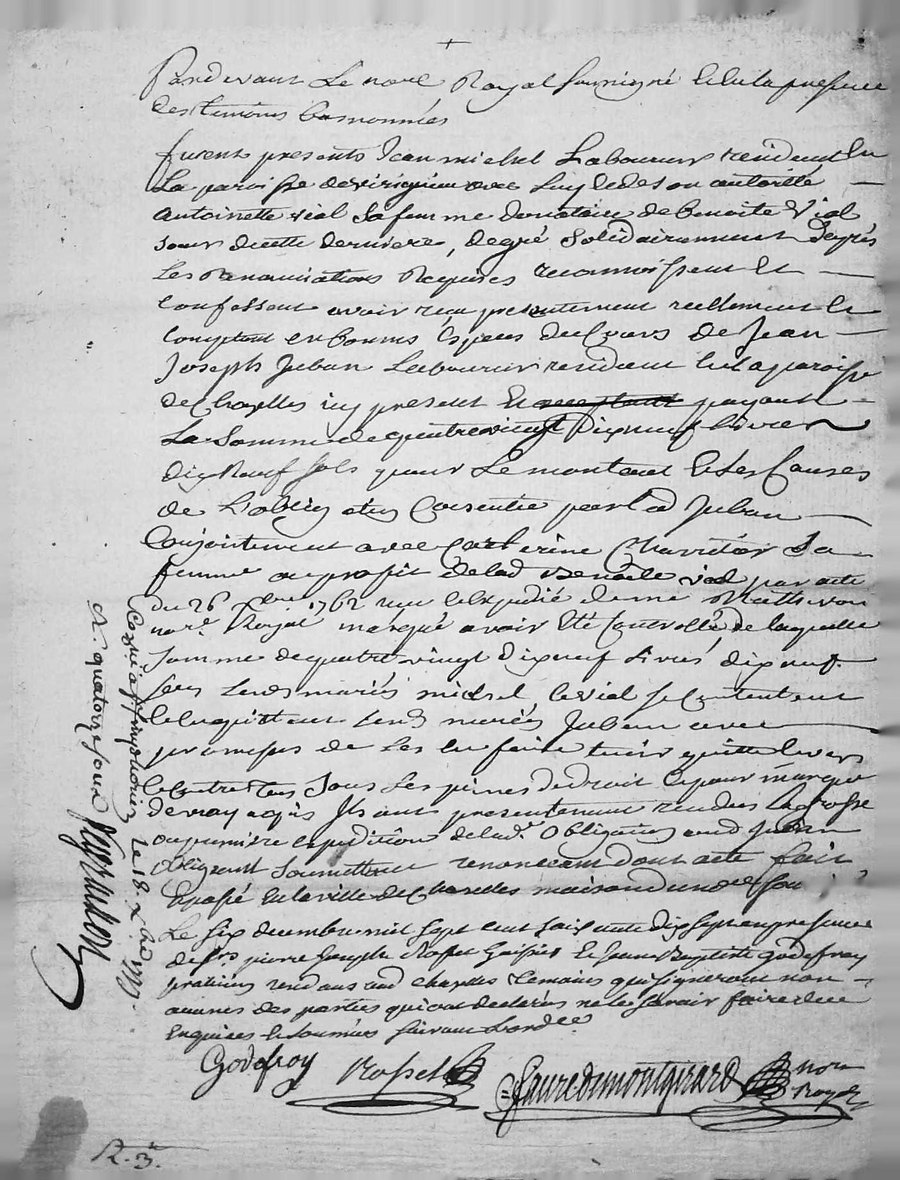 Pardevant Le no.re Royal soussigné et en la presence
des temoins bas nommés
furent presents Jean michel Laboureur residant en
La paroisse de virignieu avec Luy et de son autorité
antoinette vial sa femme donataire de benoite Vial
sœur d'icette derniere, de gré solidairement
Les Renonciations Requises reconnoissent Et
confessent avoir reçu presentement reellement et
comptant en bonnes Espèces de Cours de Jean
Joseph Juban Laboureur residant en La paroisse
de Chazelles icy present Et acceptant payant
La somme de quatre vingt Dix neuf Livres
dix Neuf sols pour Le montant et Les Causes
de L'oblig.on Consentie par led. Juban
Conjointement avec Catherine Charretier Sa
femme au profit de lad. Benoite vial par acte
du 26 1762 reçu et Expédié de me Mathevon
no.re Royal marqué avoir Eté Controllé de laquelle
somme de quatre vingt Dix neuf Livres dix neuf
sols Lesd. mariés michel et vial se Contentent
et en quittent Lesd. mariés Juban avec
promesse de Les en faire tenir quitte Envers
et Contre tous sous Les peines de droit Et pour marque
de vray acquis Ils ont presentement rendu La grosse
ou premiere expedition de lad. Obligation aud. Juban
Obligeant soumettant renoncant dont acte fait
Et passé En la ville de Chazelles maison
Le six decembre mil sept cent soixante dix sept en presence
de srs pierre Joseph Rospet Et Jean Baptiste godefroy
praticien residans aud. chazelles temoins qui signeront non
aucunes des parties qui ont declaré ne le savoir faire de ce
Enquises et sommées suivant L'ord.ce
Godefroy Rospet Faure de montgirard no.re Royal
Le 18 X.bre 1777.
R. quatorze sous
R. 3.